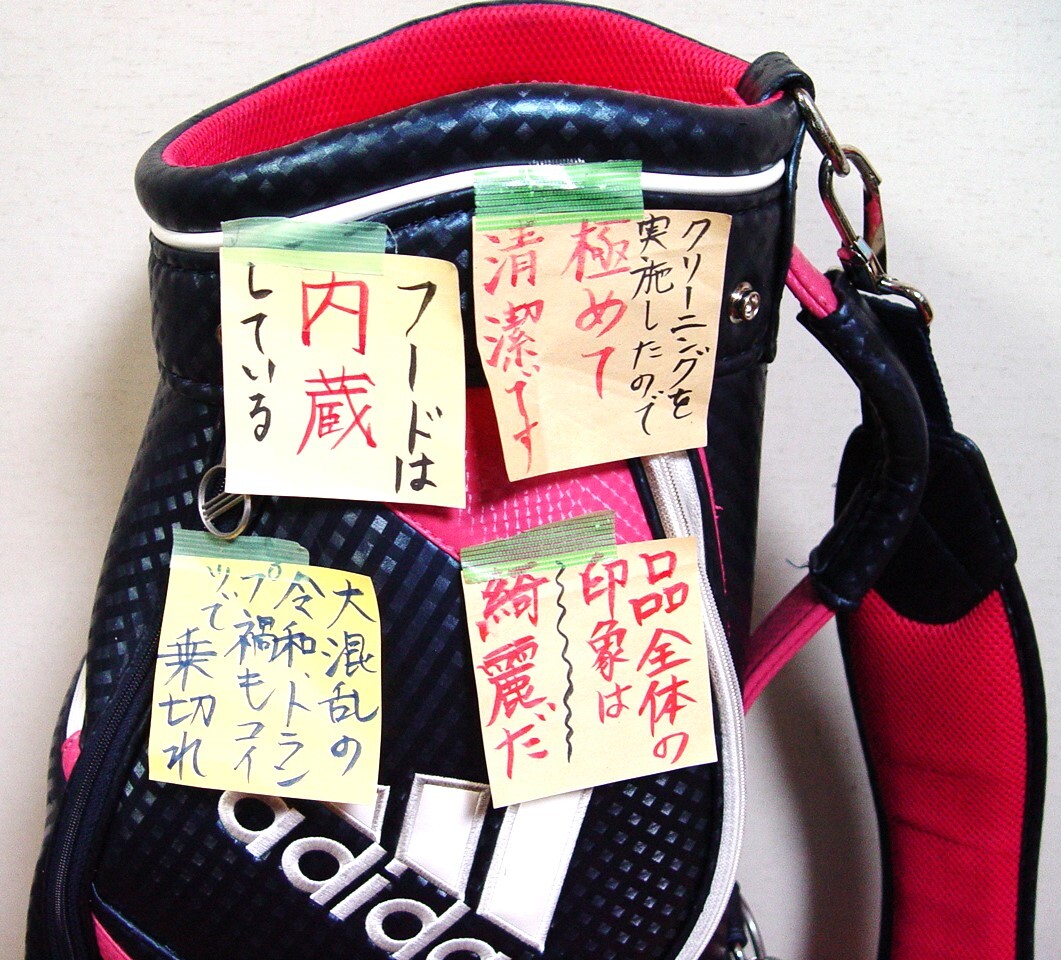 クリーニングを
実施したので
極めて
清潔です
フードは
内蔵
している
品全体の
印象は
綺麗だ
大混乱の
令和、トラン
プ禍もコイ
ツで
乗切れ
adidas